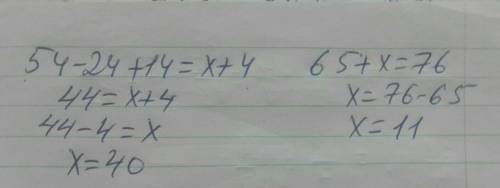 54-24+14=x+4
44=x+4
44-4=x
x=40
65+x=76
x=76-65
x=11